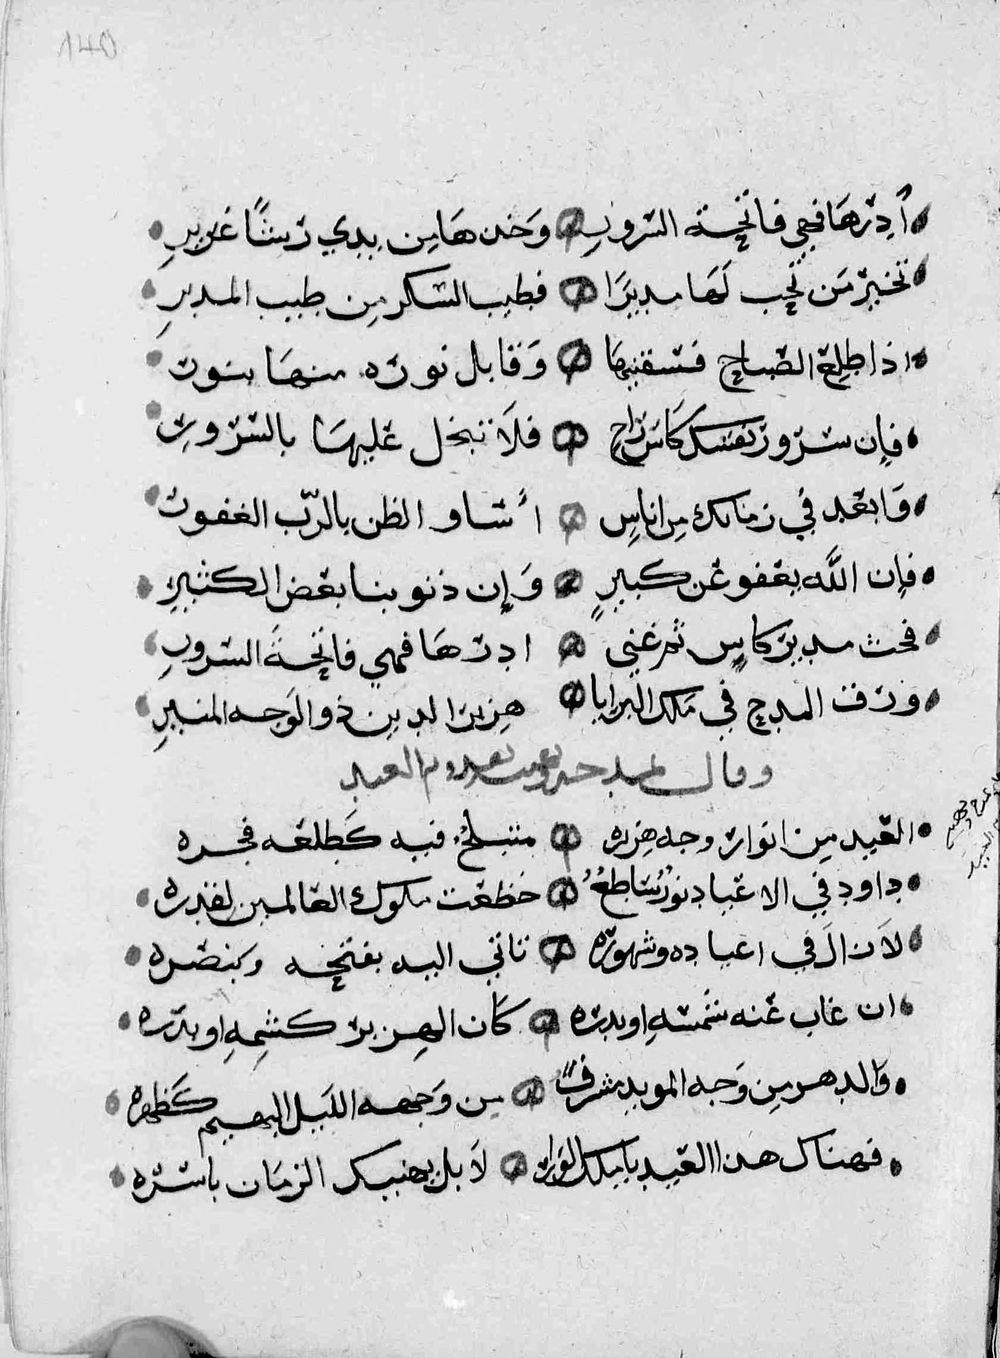 ١٤٥
أدرها فهي فاتحة السرور وخذها من يدي رشأ غرير
تخير من تحب لها مديرا فطيب السكر من طيب المدير
اذا طلع الصباح فسقنيها وقابل نوره منها بنور
فإن سرور نفسك كاس راح فلا تبخل عليها بالسرور
وابعد في زمانك من اناس أساو الظن بالرب الغفور
فإن الله يعفو عن كبير وإن ذنوبنا بعض الكثير
فحث مدير كاس ثم غني ادرها فهي فاتحة السرور
ورق المدح في ملك البرايا هزبر الدين ذو الوجه المنير
وقال يمدحه ويهنيه بقدوم العيد
العيد من انوار وجه هزبره متبلج فيه كطلعه فجره
داود في الاعياد نور ساطع خظعت ملوك العالمين لقدره
لا زال في اعياده وشهوره تاتي اليه بفتحه وبنصره
ان غاب عنه شمسه او بدره كان الهزبر كشمه او بدره
والدهر من وجه المويد مشرق من وجهه الليل البهيم كظهره
فهناك هذا العيد يا ملك الورا لا بل يهنيك الزمان باسره